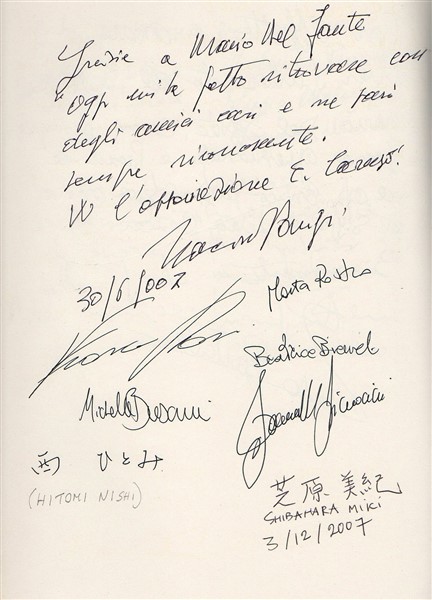 Grazie a Mario Del Fante
"Oggi mi ha fatto ritrovare con
degli amici cari e ne sarò
sempre riconoscente.
W l'associazione E. Caruso!
30/6/2007
Marta
Beatrice
Michelle
西 ひとみ
(HITOMI NISHI)
芝原 美紀
SHIBAHARA MIKI
3/12/2007